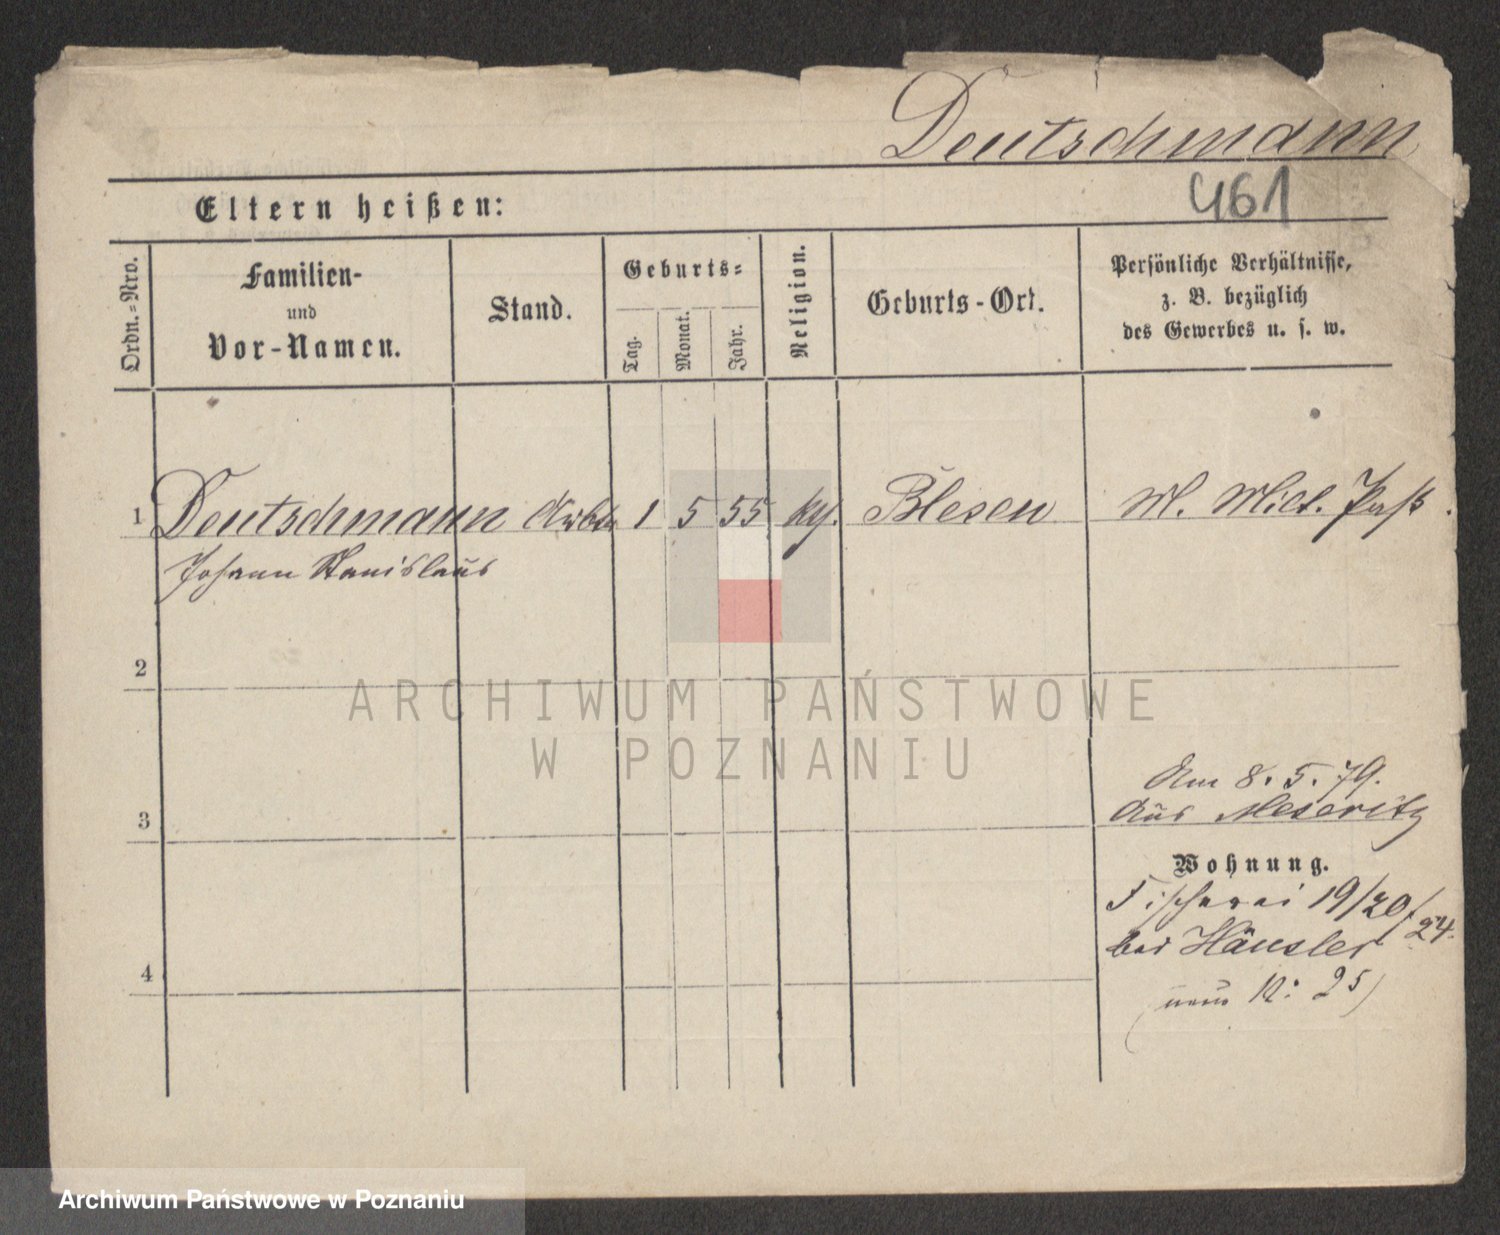 Deutschmann
461
Eltern heißen:
Ordn.-Nro.
Familien-
und
Vor-Namen.
Stand.
Geburts-
Tag.
Monat.
Jahr.
Religion.
Geburts-Ort.
Persönliche Verhältnisse,
z. B. bezüglich
des Gewerbes u. s. w.
1 Deutschmann 1 5 55 Blesen Milt. Paß.
Johann Stanislaus
2
ARCHIWUM PAŃSTWOWE
W POZNANIU
Am 8. 5. 79.
Aus Meseritz
3
Wohnung.
Fischerei 19/20/24.
bei Häusler
4
25)
Archiwum Państwowe w Poznaniu